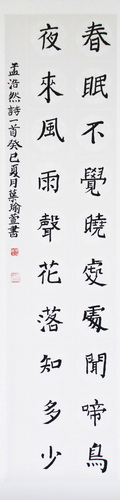 春眠不覺曉處處聞啼鳥
夜來風雨聲花落知多少
孟浩然詩一首癸巳夏月葉瑜萱書